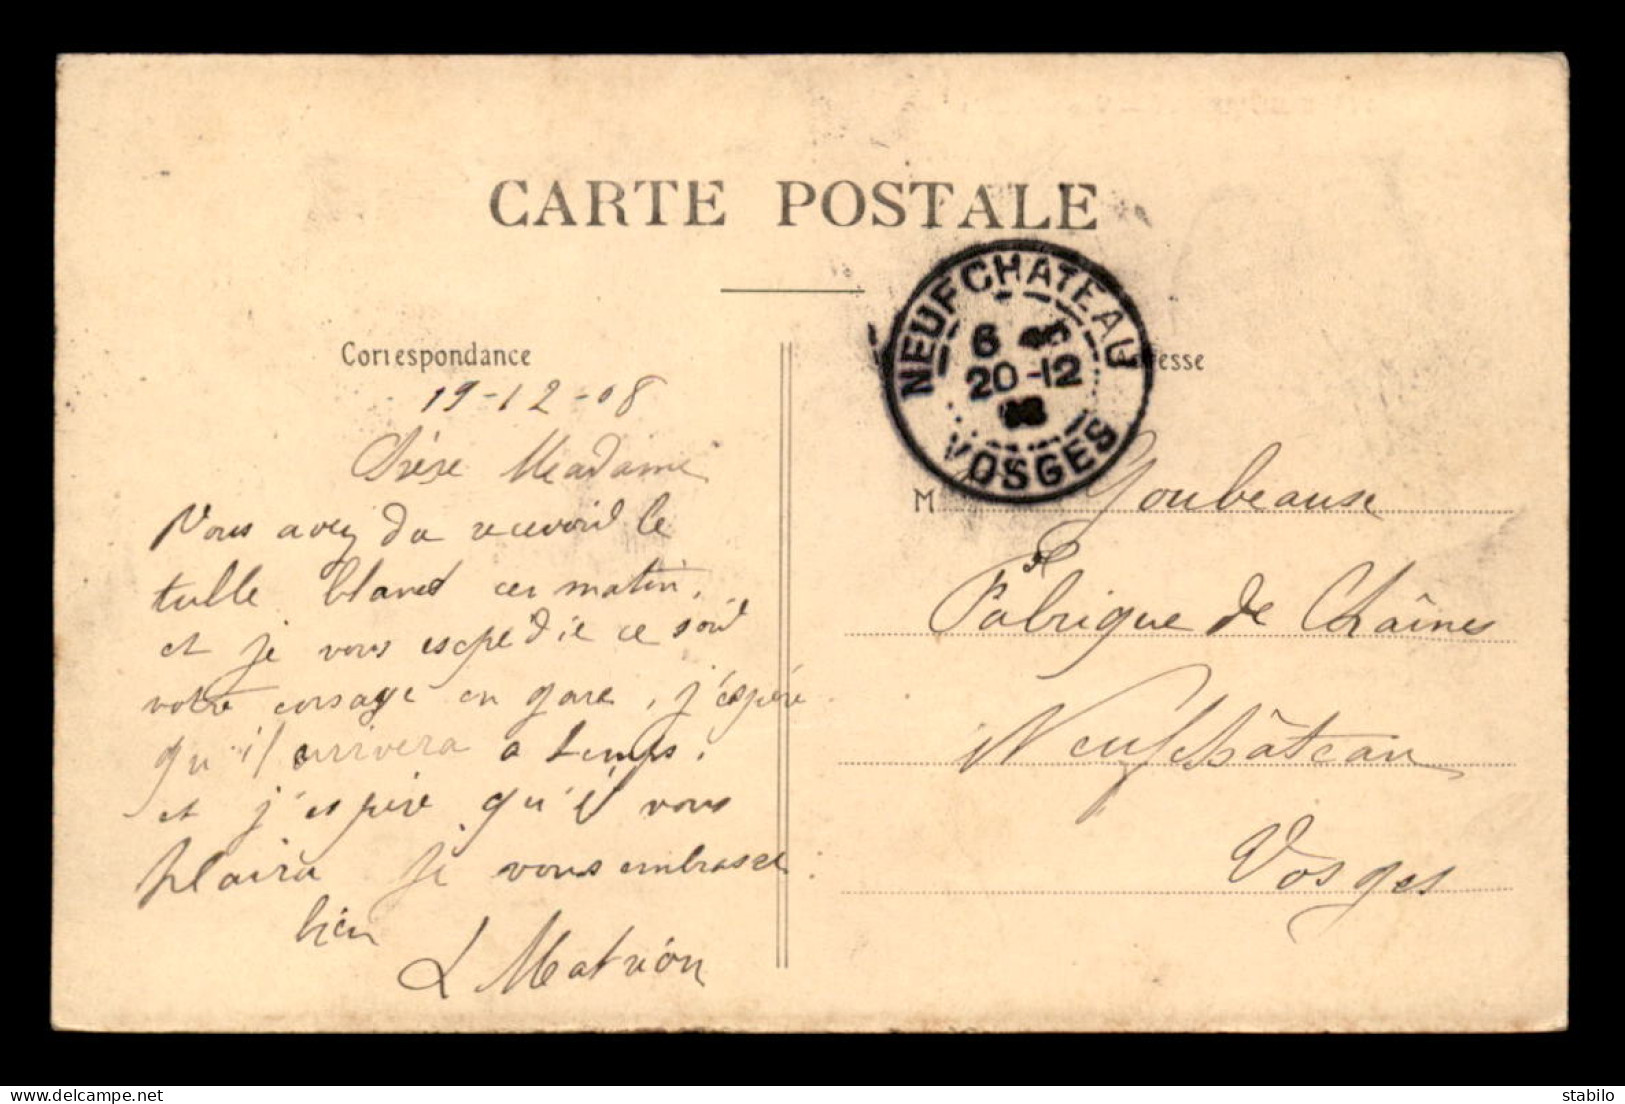 CARTE POSTALE
Correspondance
19-12-08
Chère Madame
Vous avez du recevoir le
tulle blanc ce matin,
et je vous expedie ce soir
votre corsage en gare, j'espère
qu'il arrivera a temps.
et j'espère qu'il vous
plaira je vous embrasse
bien
L Matrion
NEUFCHATEAU
6
20-12
VOSGES
esse
M Goubeause
Fabrique de Chaînes
Neufchâteau
Vosges
stabilo